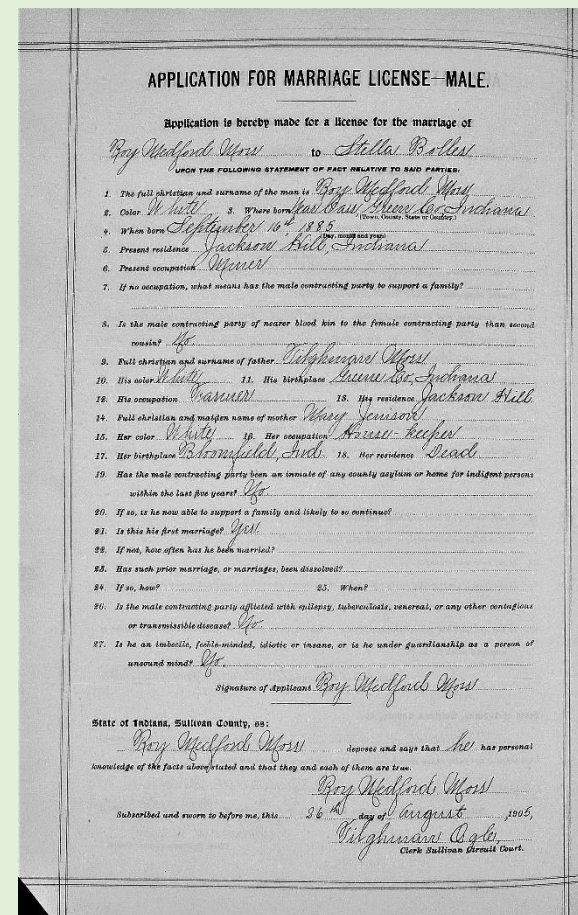 APPLICATION FOR MARRIAGE LICENSE—MALE.
Application is hereby made for a license for the marriage of
Roy Medford Moss to Stella Bolles
UPON THE FOLLOWING STATEMENT OF FACT RELATIVE TO SAID PARTIES:
1. The full christian and surname of the man is Roy Medford Moss
2. Color White 3. Where born Near Cass Green Co, Indiana
(Town, County, State or Country.)
4. When born September 16th 1885
(Day, month and year)
5. Present residence Jackson Hill, Indiana
6. Present occupation Miner
7. If no occupation, what means has the male contracting party to support a family?
8. Is the male contracting party of nearer blood kin to the female contracting party than second
cousin? No.
9. Full christian and surname of father Tilghman Moss
10. His color White 11. His birthplace Greene Co, Indiana
12. His occupation Farmer 13. His residence Jackson Hill
14. Full christian and maiden name of mother Mary Jenison
15. Her color White 16. Her occupation House-keeper
17. Her birthplace Bloomfield, Ind 18. Her residence Dead
19. Has the male contracting party been an inmate of any county asylum or home for indigent persons
within the last five years? No.
20. If so, is he now able to support a family and likely to so continue?
21. Is this his first marriage? Yes.
22. If not, how often has he been married?
23. Has such prior marriage, or marriages, been dissolved?
24. If so, how? 25. When?
26. Is the male contracting party afflicted with epilepsy, tuberculosis, venereal, or any other contagious
or transmissible disease? No.
27. Is he an imbecile, feeble-minded, idiotic or insane, or is he under guardianship as a person of
unsound mind? No.
Signature of Applicant Roy Medford Moss
State of Indiana, Sullivan County, ss:
Roy Medford Moss deposes and says that he has personal
knowledge of the facts above stated and that they and each of them are true.
Roy Medford Moss
Subscribed and sworn to before me, this 26th day of August, 1905,
Tilghman Ogle,
Clerk Sullivan Circuit Court.